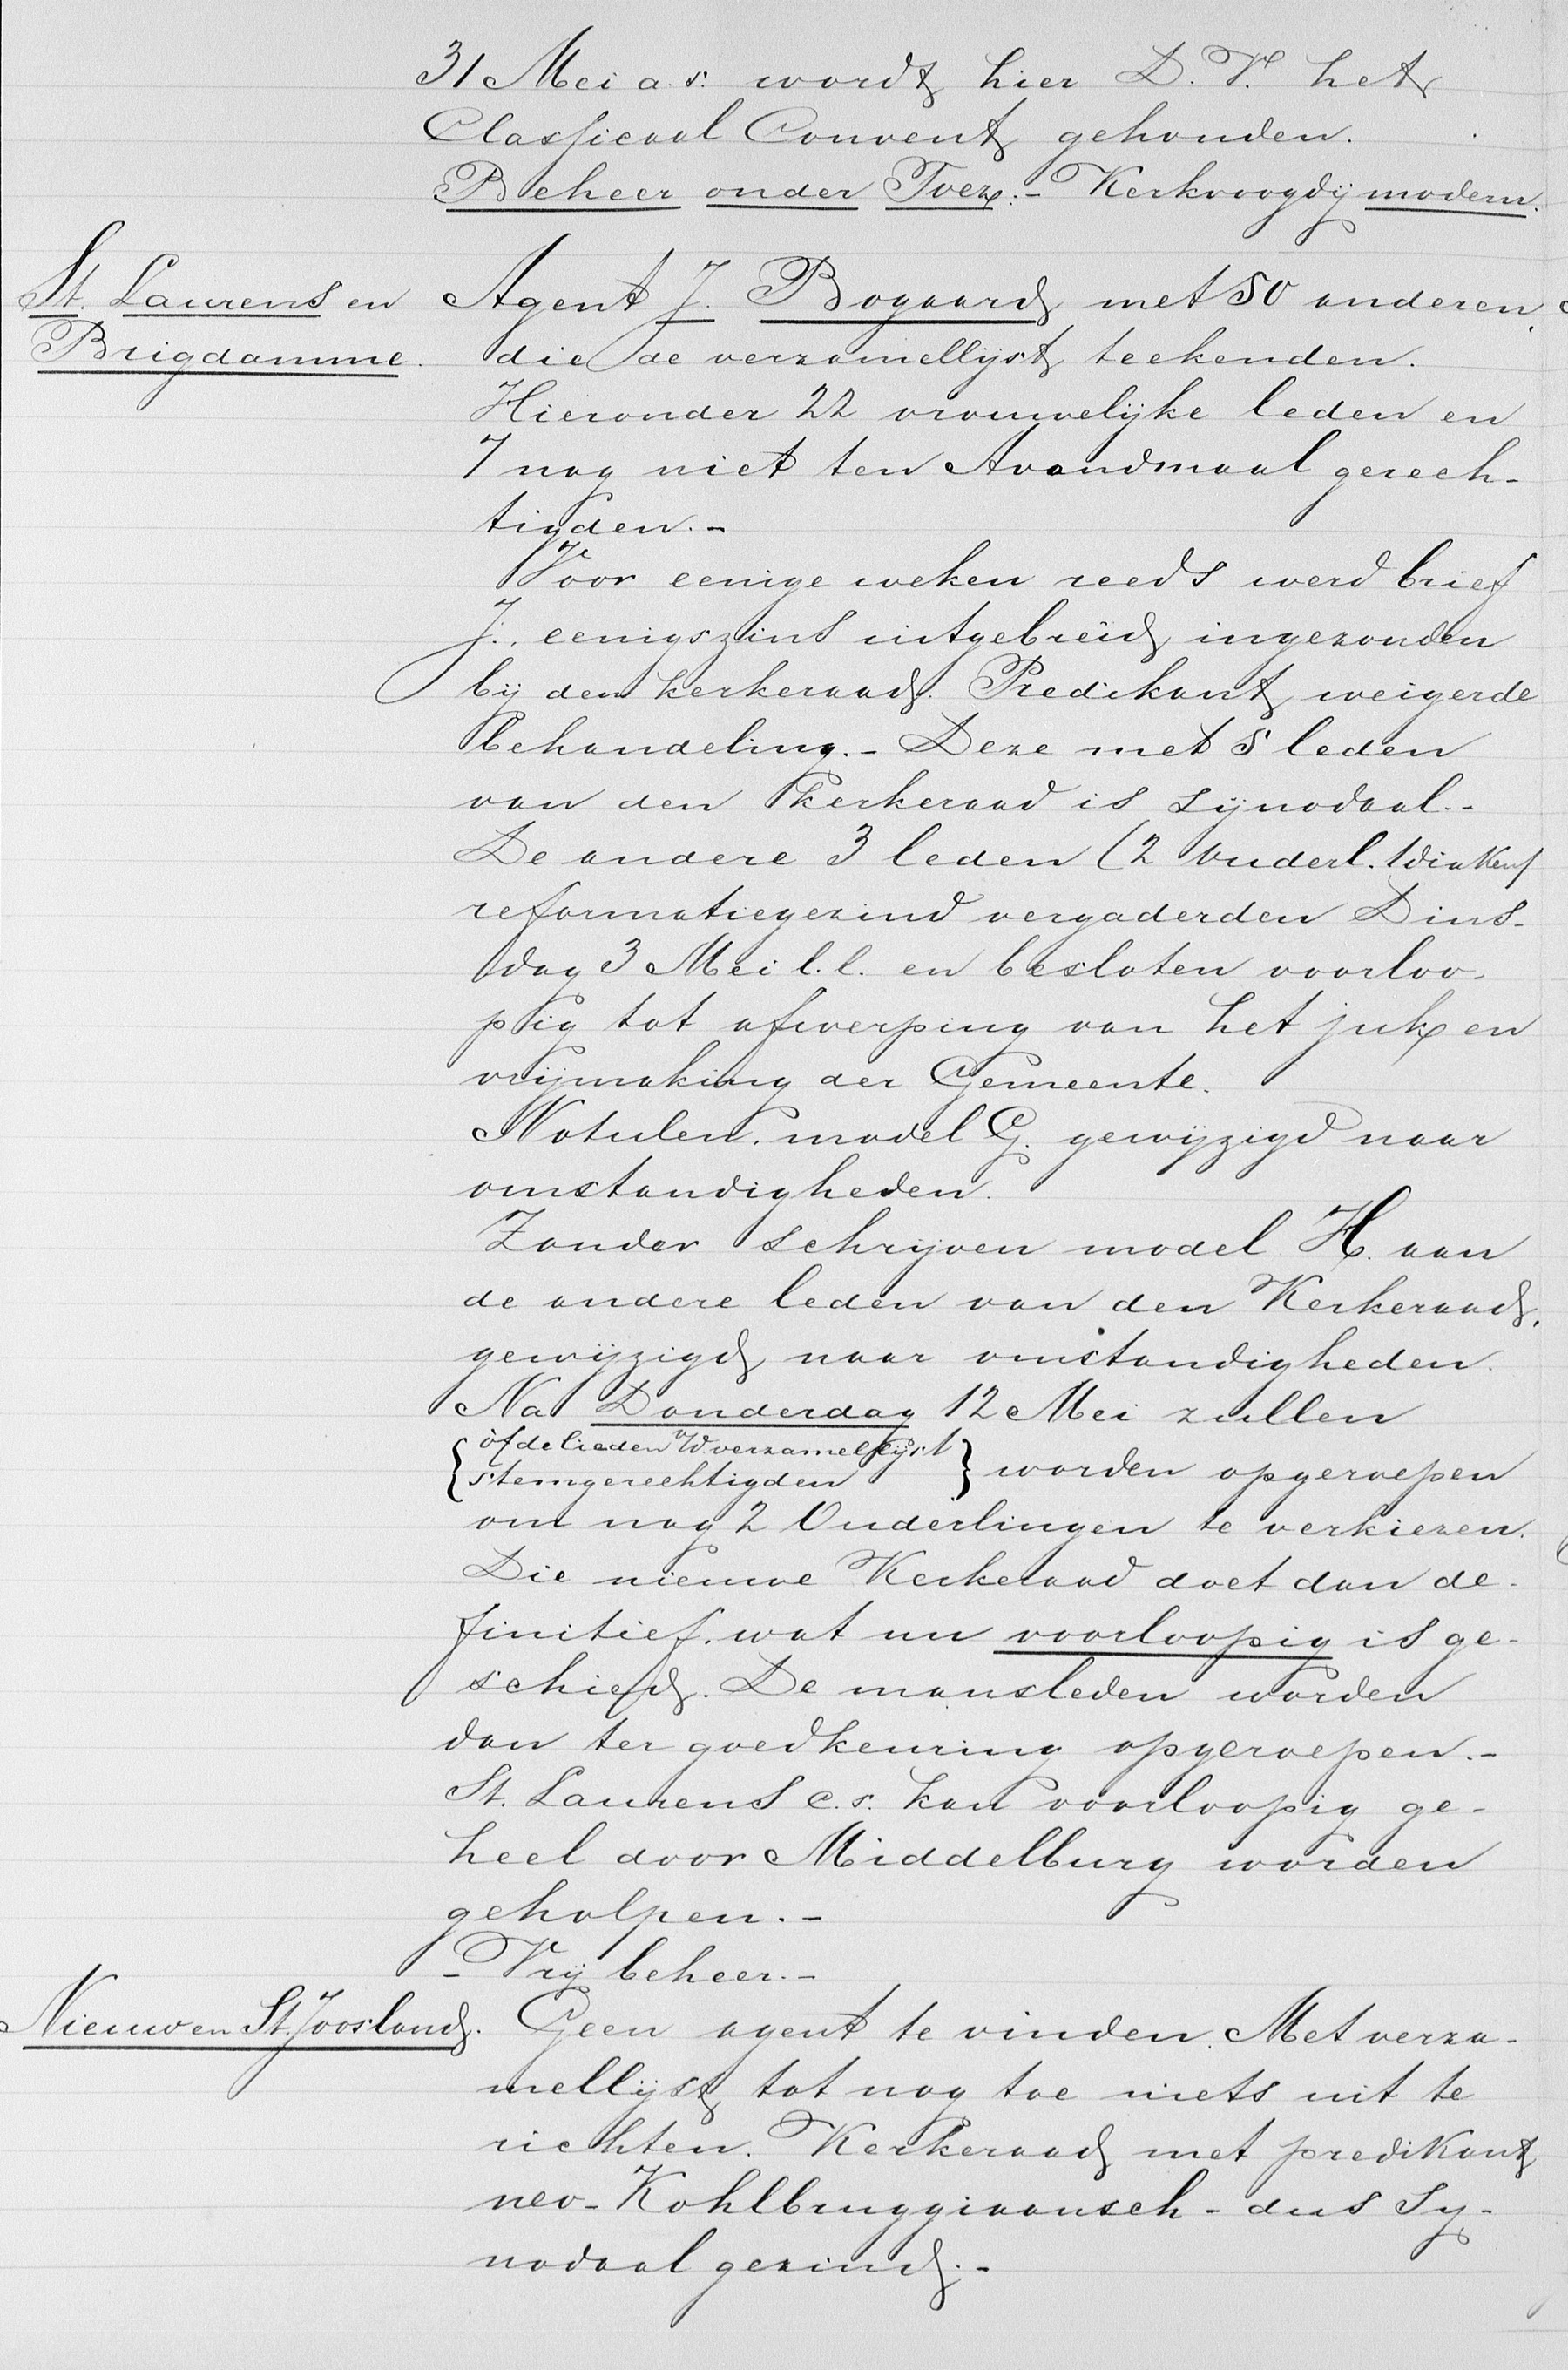 31 Mei a. s. wordt hier D. V. het
Classicaal Convent gehouden.
Beheer onder Toez.- Kerkvoogdij modern.
St. Laurens en Agent J. Bogaard met 50 anderen,
Brigdamme. die de verzamellijst teekenden.
Hieronder 22 vrouwelijke leden en
7 nog niet ten Avondmaal gerech-
tigden.-
Voor eenige weken reeds werd brief
J., eenigszins uitgebreid, ingezonden
bij den kerkeraad. Predikant weigerde
behandeling.- Deze met 5 leden
van den kerkeraad is synodaal.-
De andere 3 leden (2 Ouderl. 1 diaken)
reformatiegezind vergaderden Dins-
dag 3 Mei l.l. en besloten voorloo-
pig tot afwerping van het juk en
vrijmaking der Gemeente.
Notulen. model G. gewijzigd naar
omstandigheden.
Zonder schrijven model H. aan
de andere leden van den Kerkeraad,
gewijzigd naar omstandigheden.
Na Donderdag 12 Mei zullen
{ òf de lieden v/d verzamellijst
stemgerechtigden } worden opgeroepen
om nog 2 Ouderlingen te verkiezen.
Die nieuwe Kerkeraad doet dan de-
finitief. wat nu voorloopig is ge-
schied. De mansleden worden
dan ter goedkeuring opgeroepen.-
St. Laurens c. s. kan voorloopig ge-
heel door Middelburg worden
geholpen.-
- Vrij beheer.-
Nieuw en St. Joosland. Geen agent te vinden. Met verza-
mellijst tot nog toe niets uit te
richten. Kerkeraad met predikant
neo-Kohlbruggiaansch - dus Sy-
nodaal gezind.-